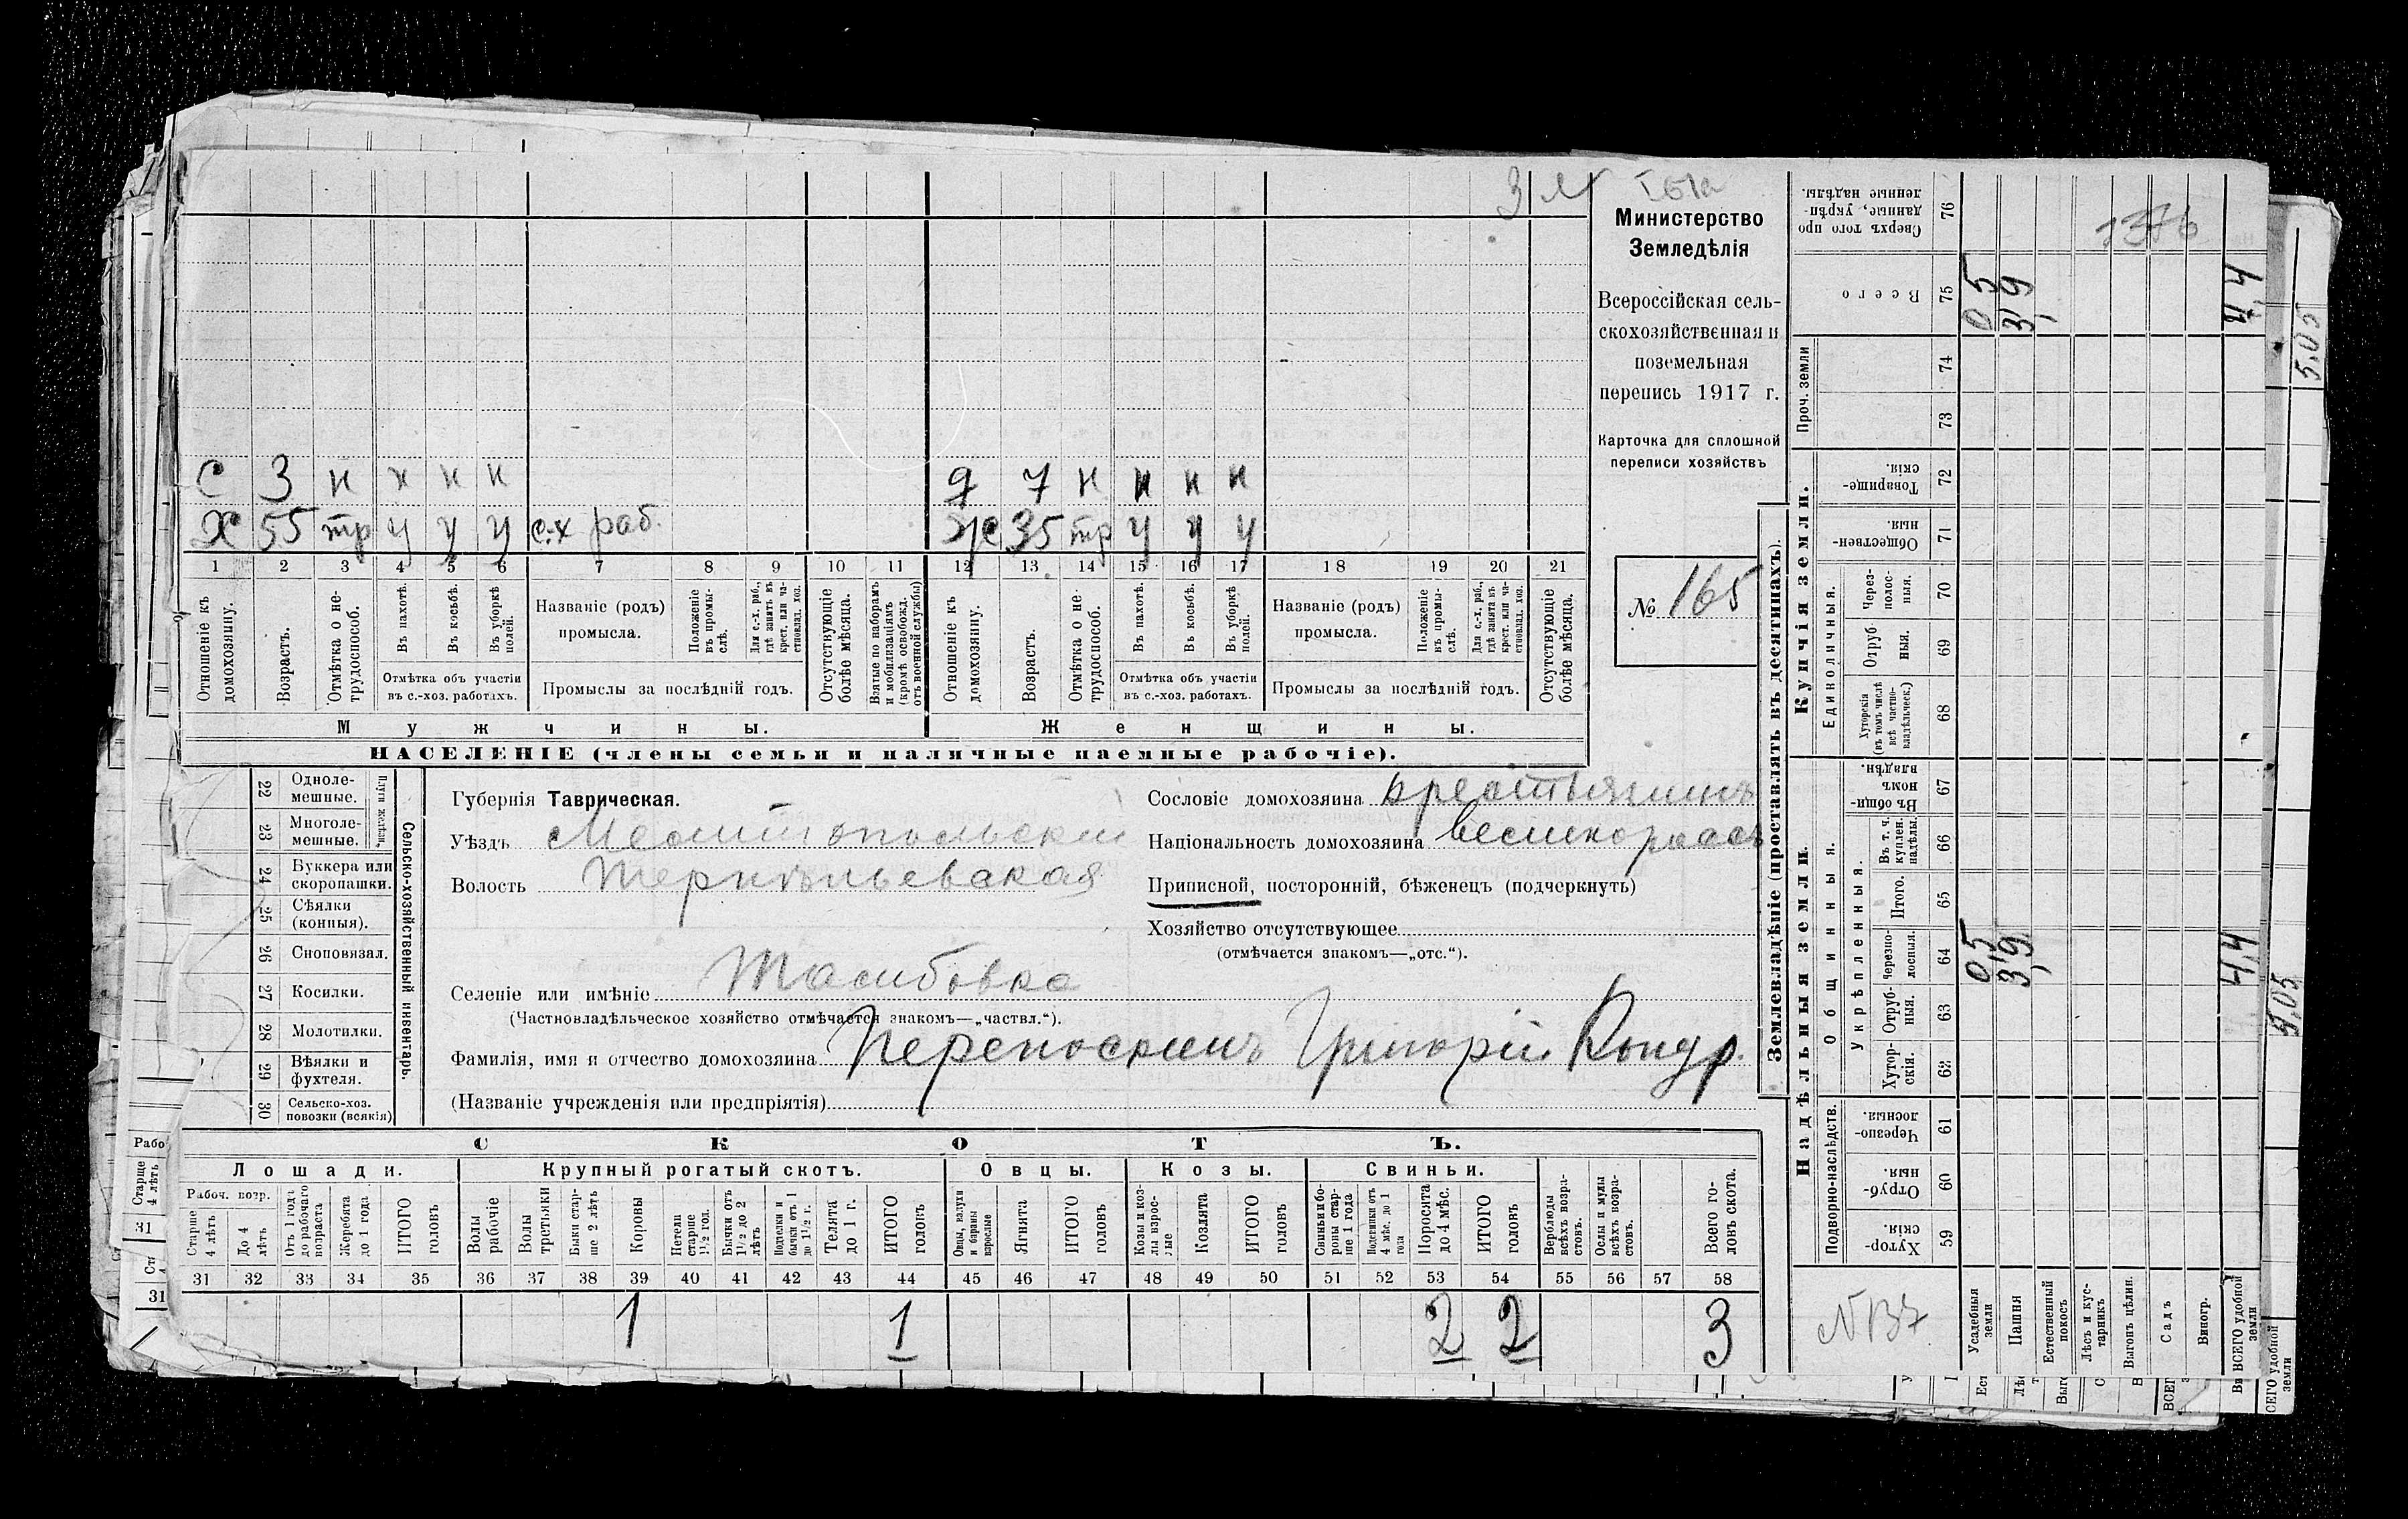 3
Министерство
Земледѣлія
Всероссійская сель-
скохозяйственная и
поземельная
перепись 1917 г.
Карточка для сплошной
переписи хозяйствъ
№ 165
с 3 н н н н
д 7 н н н н
Х 55 тр у у у с.х раб.
Ж 35 тр у у у
1 2 3 4 5 6 7 8 9 10 11 12 13 14 15 16 17 18 19 20 21
Отношеніе къ домохозяину.
Возрастъ.
Отмѣтка о не-трудоспособ.
Въ пахотѣ.
Въ косьбѣ.
Въ уборкѣ полей.
Отмѣтка объ участіи въ с.-хоз. работахъ.
Названіе (родъ) промысла.
Положеніе въ промы-слѣ.
Для с.-х. раб., гдѣ занятъ въ крест. или ча-стновлад. хоз.
Промыслы за послѣдній годъ.
Отсутствующіе болѣе мѣсяца.
Взятые по наборамъ и мобилизаціямъ (кромѣ освобожд. отъ военной службы)
Отношеніе къ домохозяину.
Возрастъ.
Отмѣтка о не-трудоспособ.
Въ пахотѣ.
Въ косьбѣ.
Въ уборкѣ полей.
Отмѣтка объ участіи въ с.-хоз. работахъ.
Названіе (родъ) промысла.
Положеніе въ промы-слѣ.
Для с.-х. раб., гдѣ занята въ крест. или ча-стновлад. хоз.
Промыслы за послѣдній годъ.
Отсутствующіе болѣе мѣсяца.
Мужчины.
Женщины.
НАСЕЛЕНІЕ (члены семьи и наличные наемные рабочіе).
22 Одноле-мешные.
23 Многоле-мешные.
24 Буккера или скоропашки.
25 Сѣялки (конныя).
26 Сноповязал.
27 Косилки.
28 Молотилки.
29 Вѣялки и фухтеля.
30 Сельско-хоз. повозки (всякія)
Сельско-хозяйственный инвентарь.
Губернія Таврическая.
Уѣздъ Мелитопольскій
Волость Терпѣньевская
Селеніе или имѣніе
(Частновладѣльческое хозяйство отмѣчается знакомъ—„частвл.“).
Фамилія, имя и отчество домохозяина Переноскинъ Григорій Конд р.
(Названіе учрежденія или предпріятія)
Сословіе домохозяина крестьянинъ
Національность домохозяина великороссъ
Приписной, посторонній, бѣженецъ (подчеркнуть)
Хозяйство отсутствующее
(отмѣчается знакомъ—„отс.“).
СКОТЪ.
Лошади.
Крупный рогатый скотъ.
Овцы.
Козы.
Свиньи.
Рабоч. возр.
Старше 4 лѣтъ
До 4 лѣтъ
Отъ 1 года до рабочаго возраста
Жеребята до 1 года
ИТОГО головъ
Волы рабочіе
Волы третьяки
Быки стар-ше 2 лѣтъ
Коровы
Нетели старше 1½ год.
Бычки отъ 1½ до 2 лѣтъ
Подтелки и бычки отъ 1 до 1½ г.
Телята до 1 г.
ИТОГО головъ
Овцы, валухи и бараны взрослые
Ягнята
ИТОГО головъ
Козы и коз-лы взрос-лые
Козлята
ИТОГО головъ
Свиньи и бо-ровы стар-ше 1 года
Подсвинки отъ 4 мѣс. до 1 года
Поросята до 4 мѣс.
ИТОГО головъ
Верблюды всѣхъ возра-стовъ.
Ослы и мулы всѣхъ возра-стовъ.
Всего го-ловъ скота.
31 32 33 34 35 36 37 38 39 40 41 42 43 44 45 46 47 48 49 50 51 52 53 54 55 56 57 58
1 1 2 2 3
Землевладѣніе (проставлять въ десятинахъ).
Купчія земли.
Надѣльныя земли.
Сверхъ того про данные, укрѣп-ленные надѣлы. 76
Всего 75
0 5
3,9
4,4
Проч. земли 74 73
Товарище-скія. 72
Обществен-ныя. 71
Единоличныя.
Через-полос-ныя. 70
Отруб-ныя. 69
Хуторскія (въ томъ числѣ всѣ частно-владѣльческ.) 68
Въ общи-номъ владѣн. 67
Общинныя.
Укрѣпленныя.
Въ т. ч. куплен. надѣлы. 66
Итого. 65
Черезпо-лосныя. 64
0 5
3,9
4,4
Отруб-ныя. 63
Хутор-скія. 62
Подворно-наслѣдств.
Черезпо-лосныя. 61
Отруб-ныя. 60
Хутор-скія. 59
Усадебныя земли
Пашня
Естественный покосъ
Лѣсъ и кус-тарникъ
Выгонъ цѣлин.
Садъ
Виногр.
ВСЕГО удобной земли
5.05
5.05